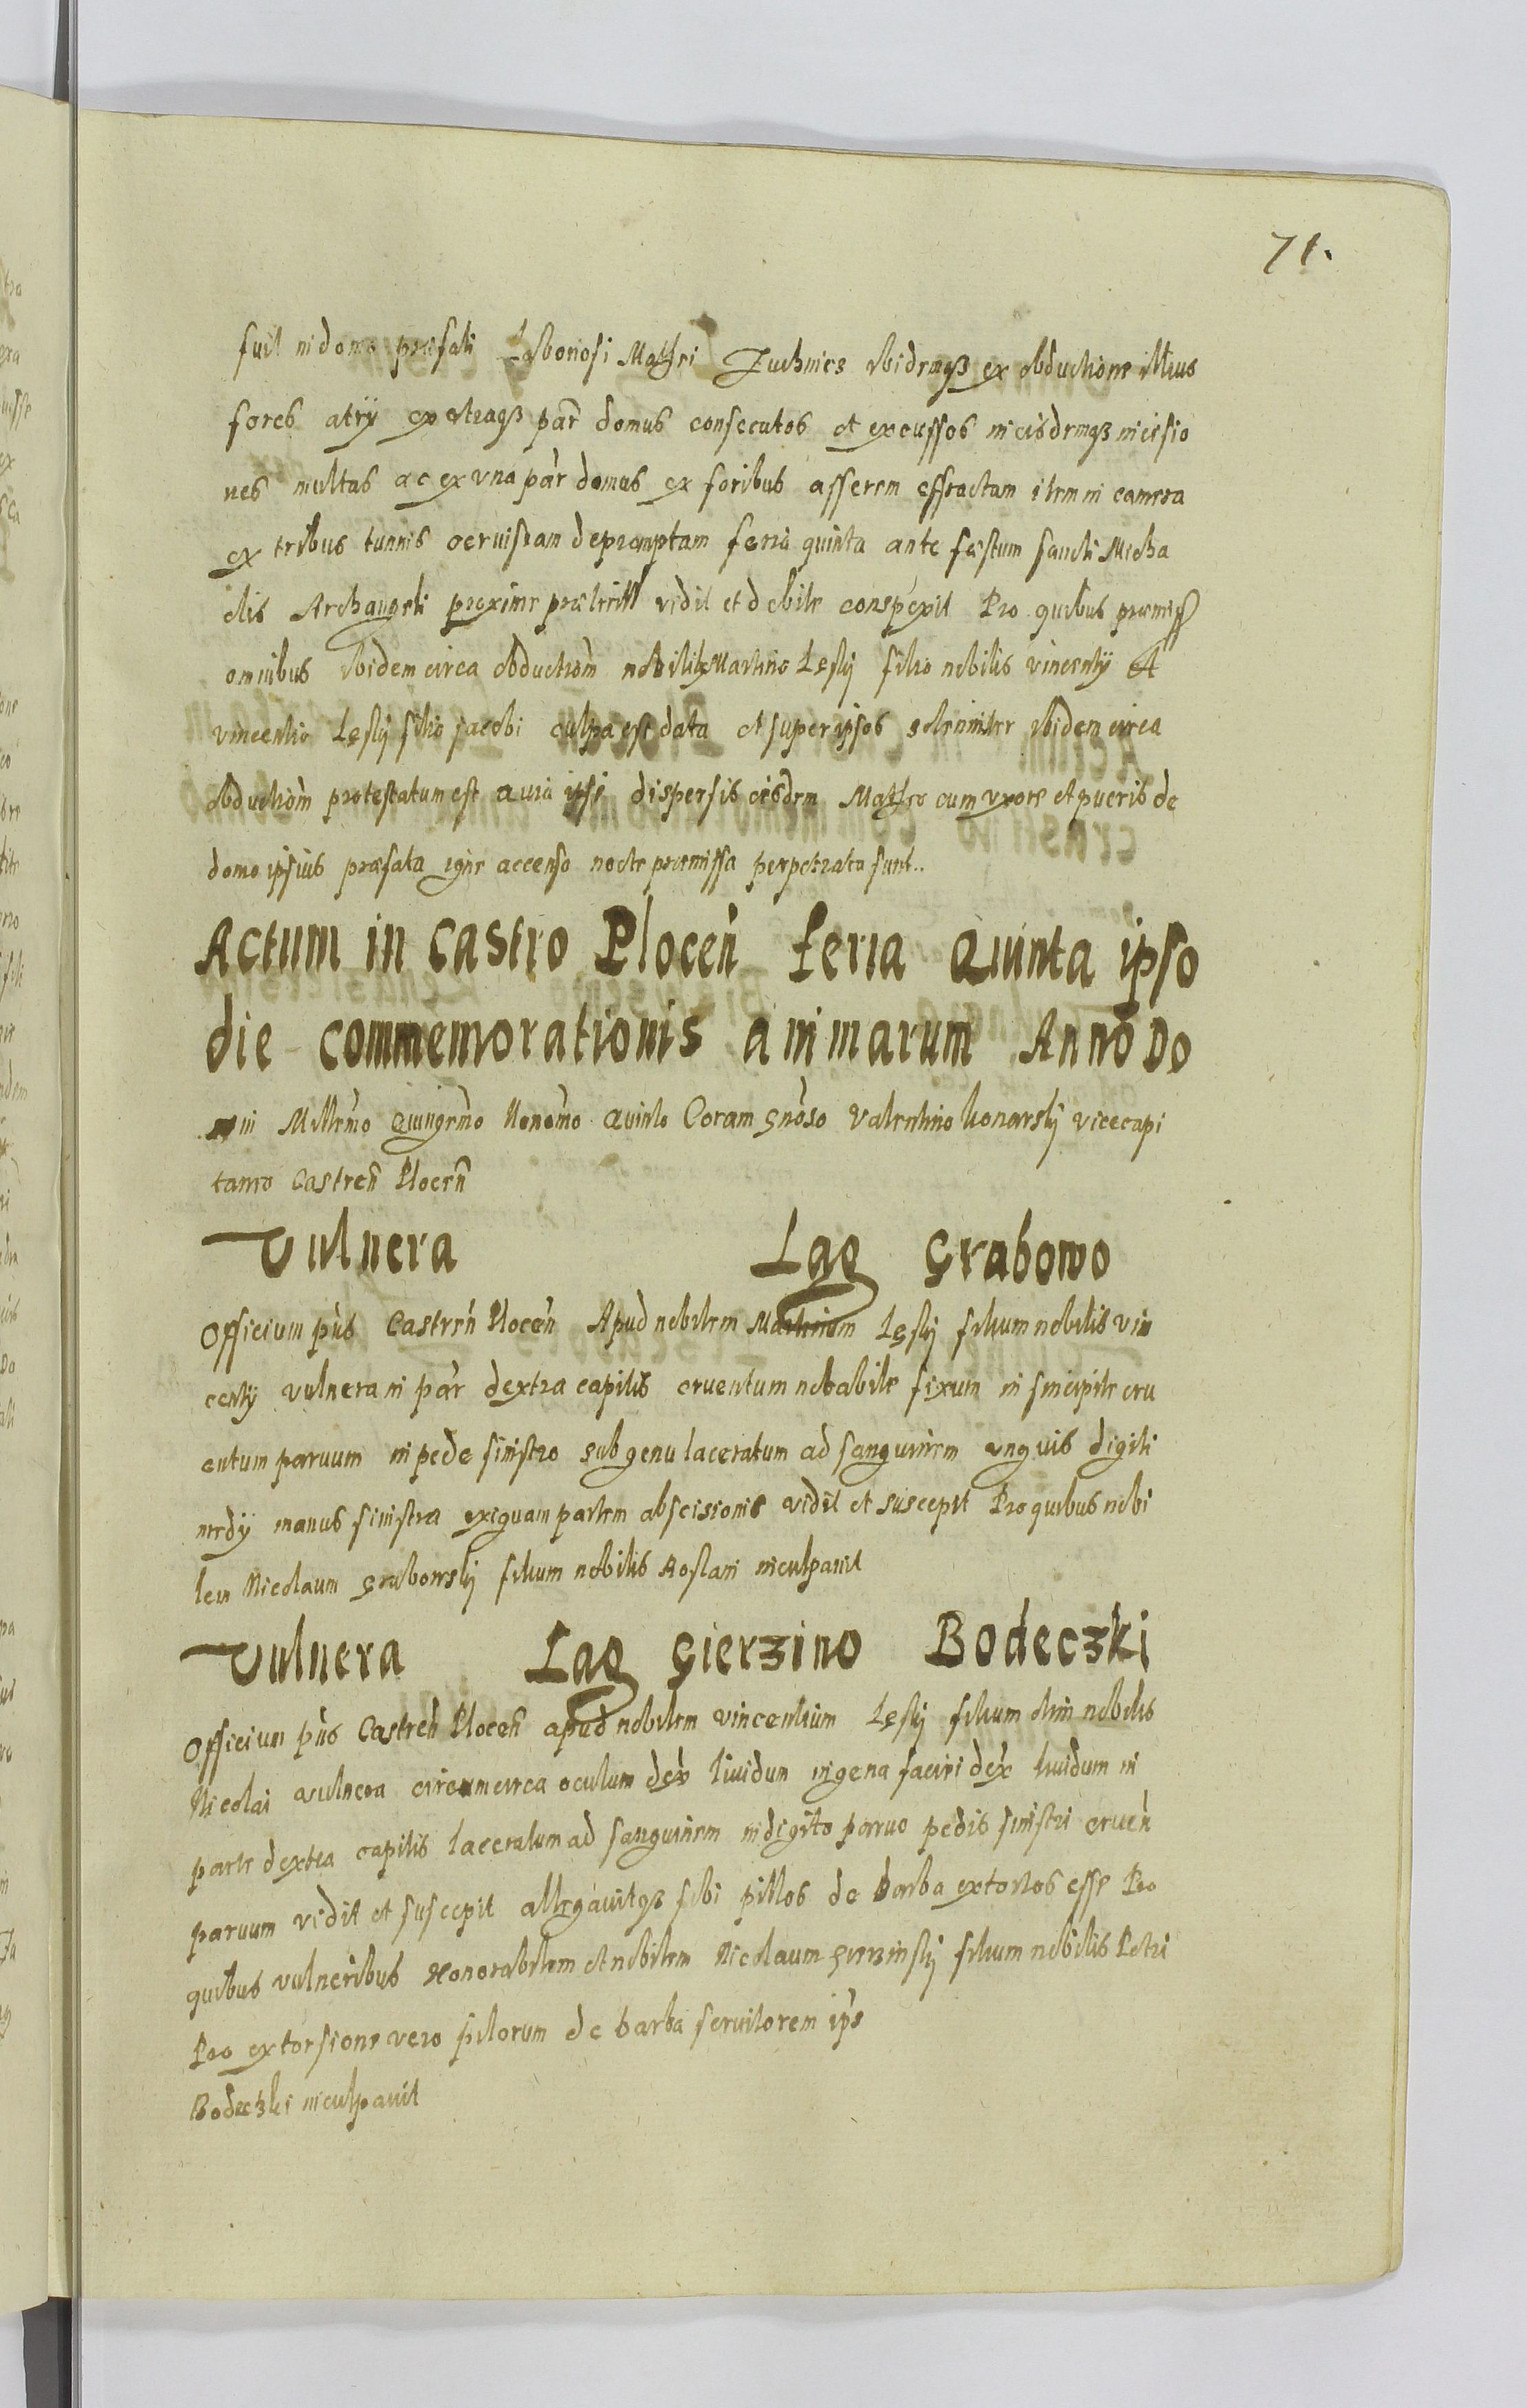 71.
fuit in domo præfati Laboriosi Mathei Zuchnies ibidemqз ex obductione illius
fores atrÿ ex utraqз par̃ domus consecutos et excussos in eisdemqз incisio
nes multas ac ex una par̃ domus ex foribus asserem effractam item in camera
ex tribus tunnis cervisiam depromptam feria quinta ante festum sancti Micha
elis Archangeli proxime præterit vidit et debite conspexit Pro quibus præmiss
omnibus ibidem circa obductiom̃ nobili Martino Lęsky filio nobilis vincentÿ Et
vincentio Lęsky filio Jacobi culpa est data et super ipsos solenniter ibidem circa
obductiom̃ protestatum est quia ipsi dispersis eisdem Matheo cum uxore et pueris de
domo ipsius præfata igne accenso nocte præmissa perpetrata sunt..
Actum in Castro Plocen̄ feria Quinta ipso
die commemorationis animarum Anno Do
mi Millem̃o Quingem̃o Nonom̃o Quinto Coram Gnõso Valentino konarsky vicecapi
taneo Castren̄ Plocen̄
Vulnera Lag Grabowo
Officium pn̄s Castren̄ Plocen̄ Apud nobilem Martinum Lęsky filium nobilis vin
centÿ vulnera in par̃ dextra capitis cruentum notabile fixum in sincipite cru
entum parvum in pede sinistro sub genu laceratum ad sanguinem unguis digiti
medÿ manus sinistra exiguam partem abscisionis vidit et suscepit Pro quibus nobi
lem Nicolaum Grabowsky filium nobilis Roslani inculpavit
Vulnera Lag Gierzino Bodeczki
Officium pn̄s Castren̄ Plocen̄ apud nobilem vincentium Lęsky filium olim nobilis
Nicolai vulnera circumcirca oculum dex̃ lividum in gena faciei dex̃ lividum in
parte dextra capitis laceratum ad sanguinem in digito parvo pedis sinistri cruen̄
parvum vidit et suscepit allegavitqз sibi pillos de barba extortos esse Pro
quibus vulneribus Honorabilem et nobilem Nicolaum Gierzinsky filium nobilis Petri
Pro extorsione vero pilorum de barba servitorem ips̃
Bodeczki inculpavit